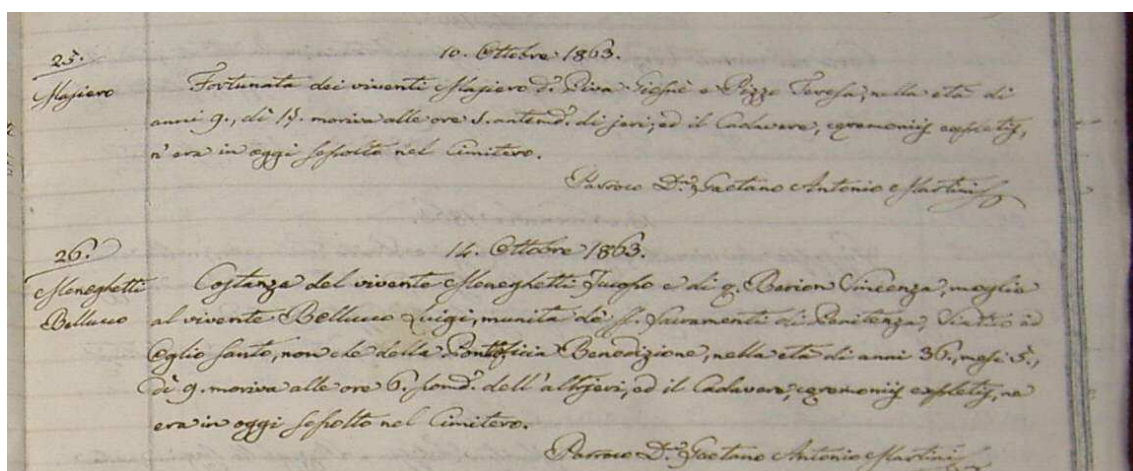 25.
Masiero
10. Ottobre 1863.
Fortunata dei viventi Masiero d.º Piva Giosuè e Rizzo Teresa, nella età di
anni 9., dì 15. moriva alle ore 5. antemd.ⁿᵉ di jeri, ed il Cadavere, cęremoniis expletis,
n'era in oggi sepolto nel Cimitero.
Parroco D.ⁿ Gaetano Antonio Martini
26.
Meneghetti
Bellucco
14. Ottobre 1863.
Costanza del vivente Meneghetti Jacopo e di q. Berion Vincenza, moglie
al vivente Bellucco Luigi, munita de' S. Sacramenti di Penitenza, Viatico ed
Oglio santo, non che della Pontificia Benedizione, nella età di anni 36., mesi 5.,
dì 9. moriva alle ore 6. pomd.ⁿᵉ dell'altrjeri, ed il Cadavere, cęremoniis expletis, ne
era in oggi sepolto nel Cimitero.
Parroco D.ⁿ Gaetano Antonio Martini